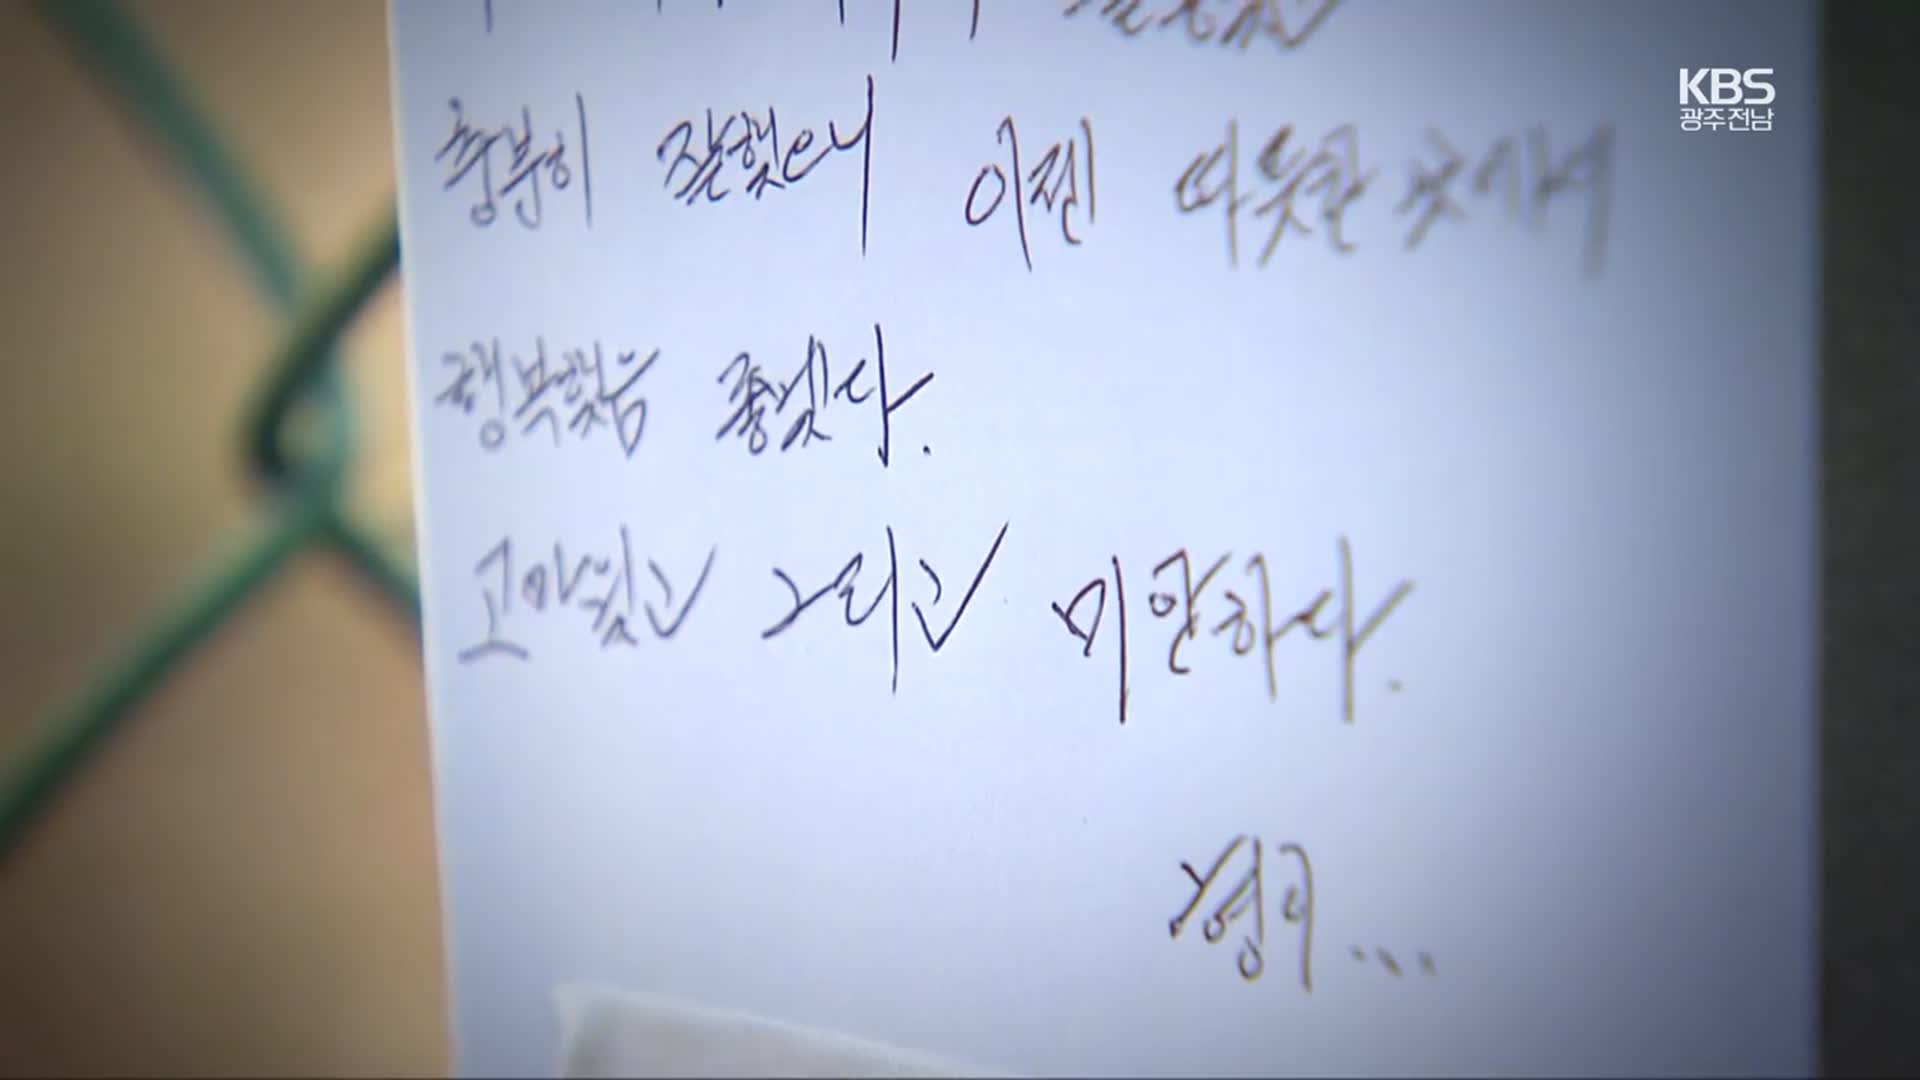 KBS
광주전남
충분히 잘했으니 이젠 따뜻한 곳에서
행복했음 좋겠다.
고마웠고 그리고 미안하다.
형이...